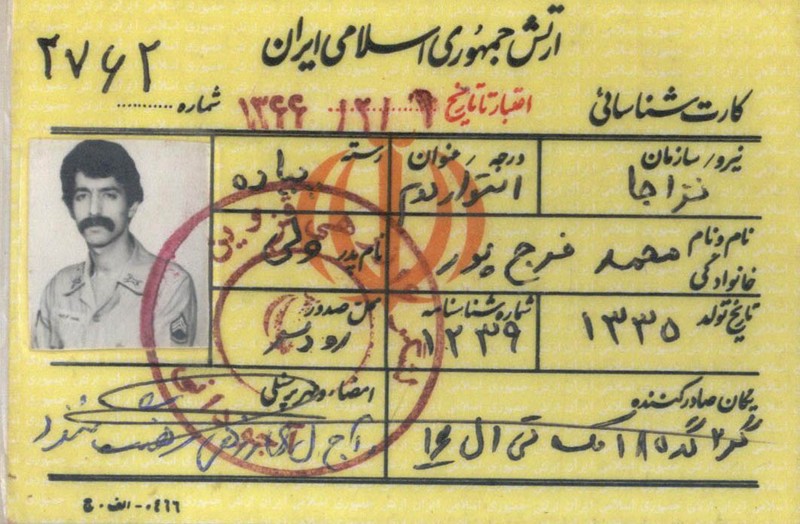 ارتش جمهوری اسلامی ایران
۲۷۶۲
کارت شناسائی
اعتبار تا تاریخ ۱۳۶۶/۲/۹
شماره
نیرو/سازمان
نزاجا
درجه/عنوان
استوار دوم
رسته
پیاده
نام و نام خانوادگی
محمد فرج پور
نام پدر
ولی
تاریخ تولد
۱۳۳۵
شماره شناسنامه
۱۲۳۹
محل صدور
رودسر
یگان صادرکننده
گر۲ گد ۱۸۵ مک تی ال ۱۶
امضاء و مهر پرسنلی
۰۴۶۶-الف-ج